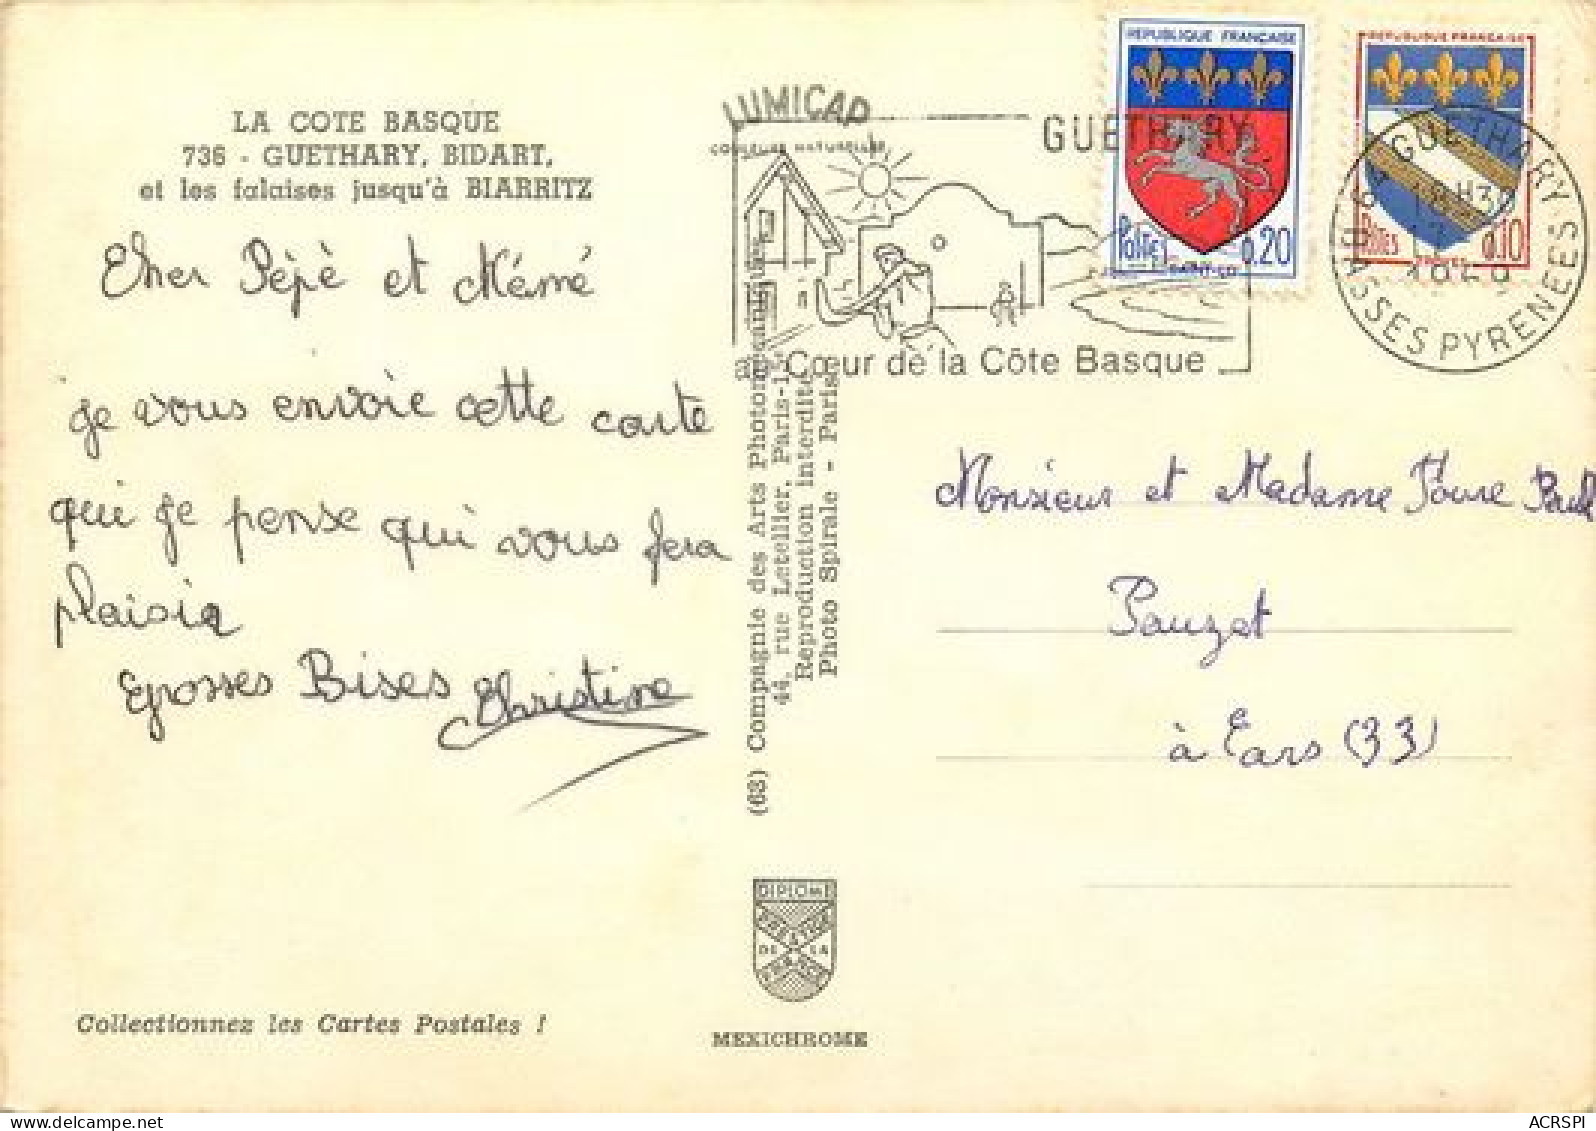 LA COTE BASQUE
736 - GUETHARY, BIDART,
et les falaises jusqu'à BIARRITZ
Cher Pépè et Mémé
je vous envoie cette carte
qui je pense qui vous fera
plaisir
Grosses Bises Christine
Collectionnez les Cartes Postales !
LUMICAP
COULEURS NATURELLES
(63) Compagnie des Arts Photomécaniques
44, rue Letellier, Paris-15e
Reproduction interdite
Photo Spirale - Paris
DIPLOME
PRESTIGE
DE LA
FRANCE
MEXICHROME
GUETHARY
Cœur de la Côte Basque
REPUBLIQUE FRANÇAISE
Postes 0.20
SAINT-LO
REPUBLIQUE FRANCAISE
Postes 0.10
64 GUETHARY BASSES PYRENEES
Monsieur et Madame Paul
Pauzet
à Cars (33)
ACRSPI